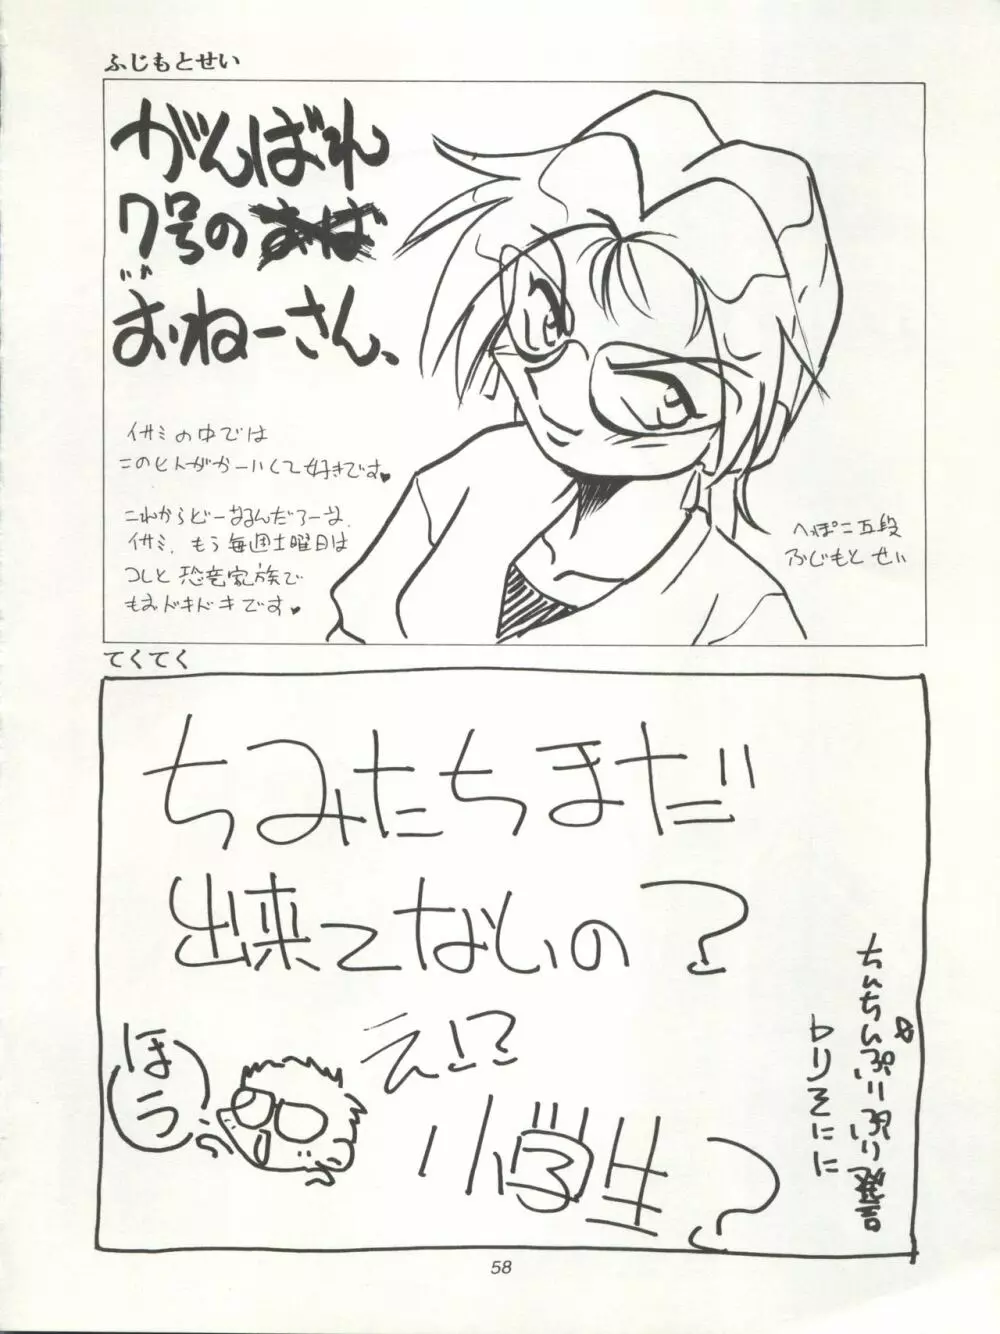 ふじもとせい
がんばれ
7号の
おねーさん、
イサミの中では
このヒトがかーいくて好きです♥
これからどーなるんだろーな、
イサミ。もう毎週土曜日は
コレと恐竜家族で
もおドキドキです♥
へっぽこ五段
ふじもと せい
てくてく
ちみたちまだ
出来てないの?
ちんちんぷりぷり発言
トリオに
え!?
ほう
小学生?
58